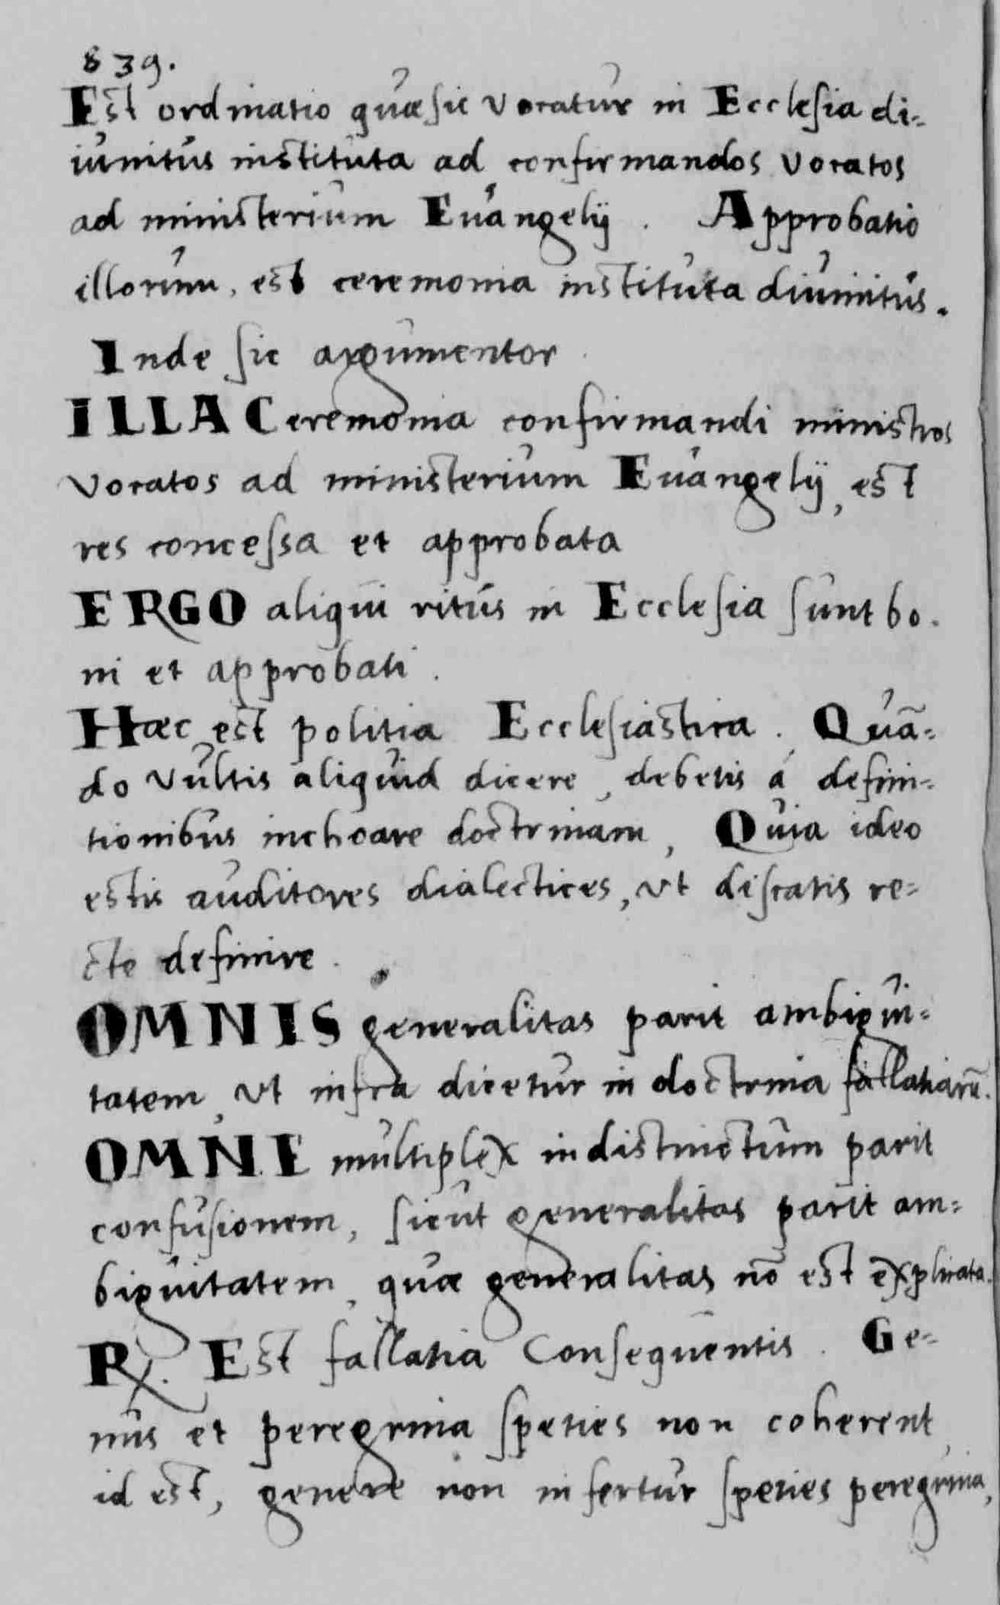 839.
Est ordinatio quæ sic vocatur in Ecclesia di-
uinitus instituta ad confirmandos vocatos
ad ministerium Euangelij. Approbatio
illorum, est ceremonia instituta diuinitus.
Inde sic argumentor
ILLA Ceremonia confirmandi ministros
vocatos ad ministerium Euangelij, est
res concessa et approbata
ERGO aliqui ritus in Ecclesia sunt bo-
ni et approbati.
Hæc est politia Ecclesiastica. Quã-
do vultis aliquid dicere, debetis á defini-
tionibus inchoare doctrinam, Quia ideo
estis auditores dialectices, vt discatis re-
cte definire.
OMNIS generalitas parit ambigui-
tatem, vt infra dicetur in doctrina fallatiarũ.
OMNE multiplex indistinctum parit
confusionem, sicut generalitas parit am-
biguitatem, quæ generalitas nõ est explicata.
R. Est fallatia Consequentis. Ge-
nus et peregrina speties non coherent,
id est, genere non infertur speties peregrina,